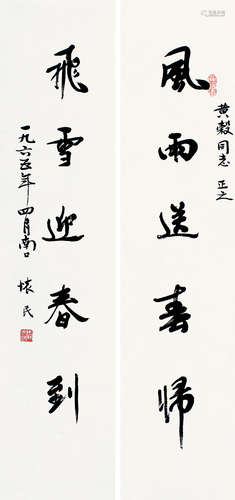 黄穀同志 正之
風雨送春歸
飛雪迎春到
一九六五年四月南口 懷民